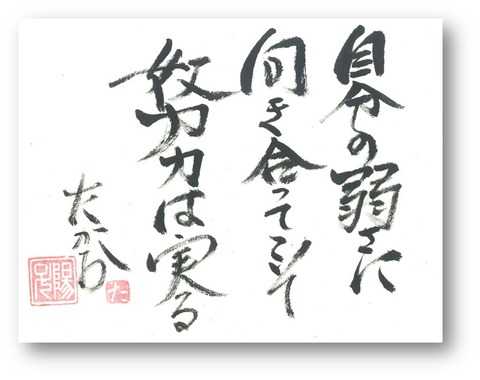 自分の弱さに
向き合ってこそ
努力は実る
た